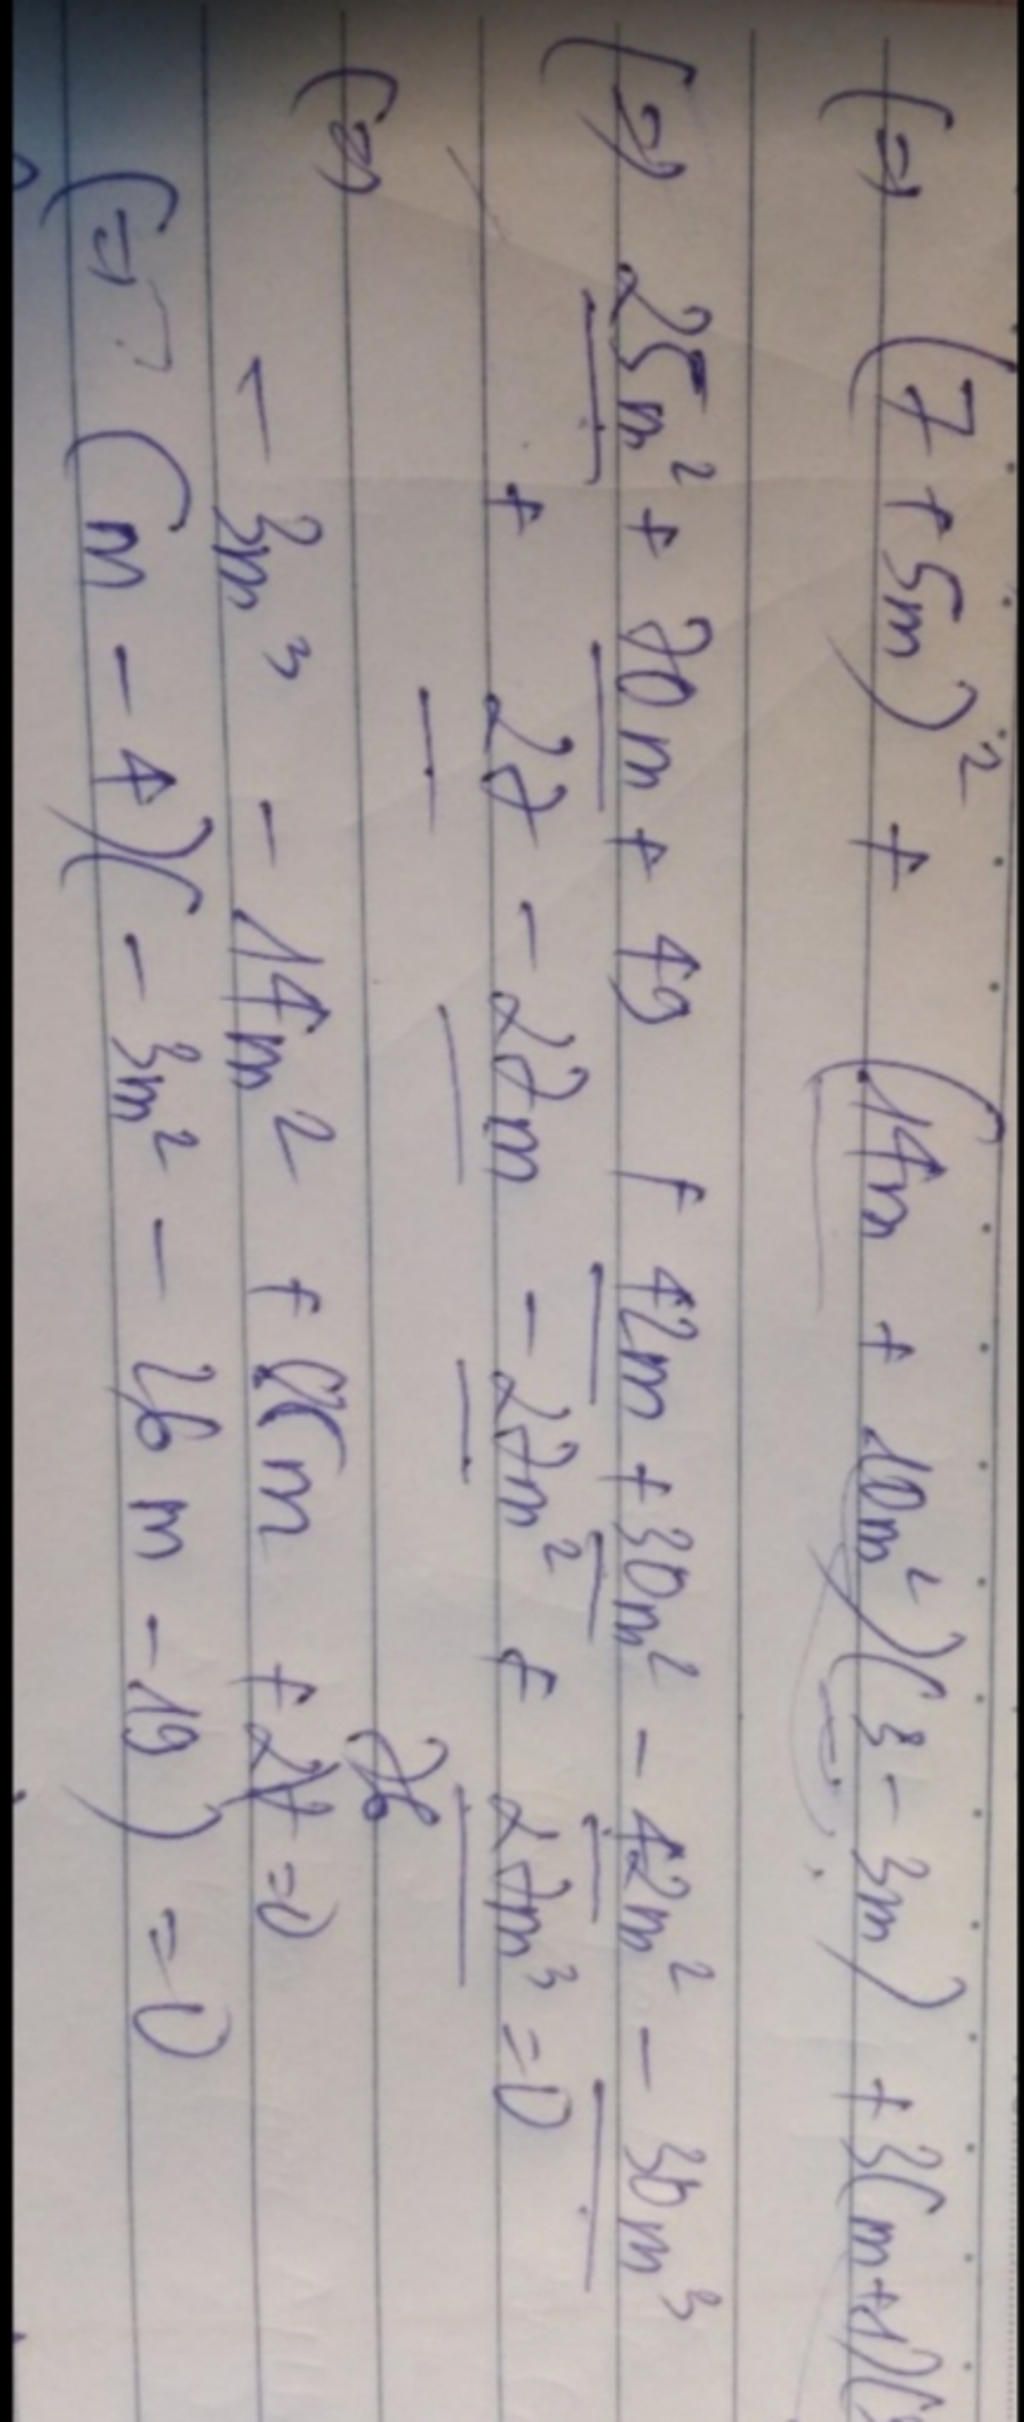 (=) (7+5m)² + (14m + 10m²)(3-3m) + 3(m+1)(
(=) 25m² + 70m + 49 + 42m + 30m² - 42m² - 30m³
+ 27 - 27m - 27m² + 27m³ = 0
(=) 76
- 3m³ - 14m² + m + 27 = 0
(=) (m - 4)(-3m² - 26m - 19) = 0